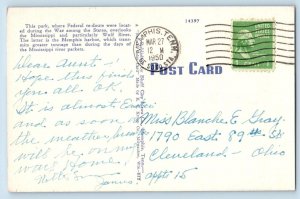 This park, where Federal re-doubts were locat-
ed during the War among the States, overlooks
the Mississippi and particularly Wolf River.
The latter is the Memphis harbor, which trans-
mits greater tonnage than during the days of
the Mississippi river packets.
14397
MEMPHIS, TENN.
MAR 27
12 M
1950
POST CARD
Dear Aunt -
Hope this finds
you all O.K.
It is almost Easter
and as soon as
the weather
will be on my
way home.
Miss Blanche E. Gray
1790 East 89th St
Cleveland - Ohio
apt 15